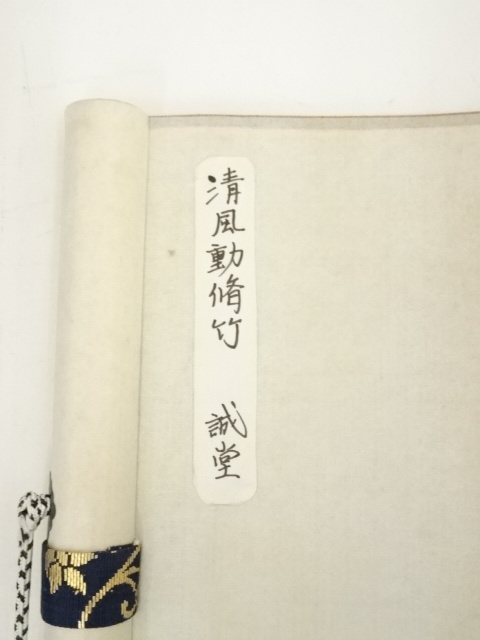 清風動脩竹 誠堂